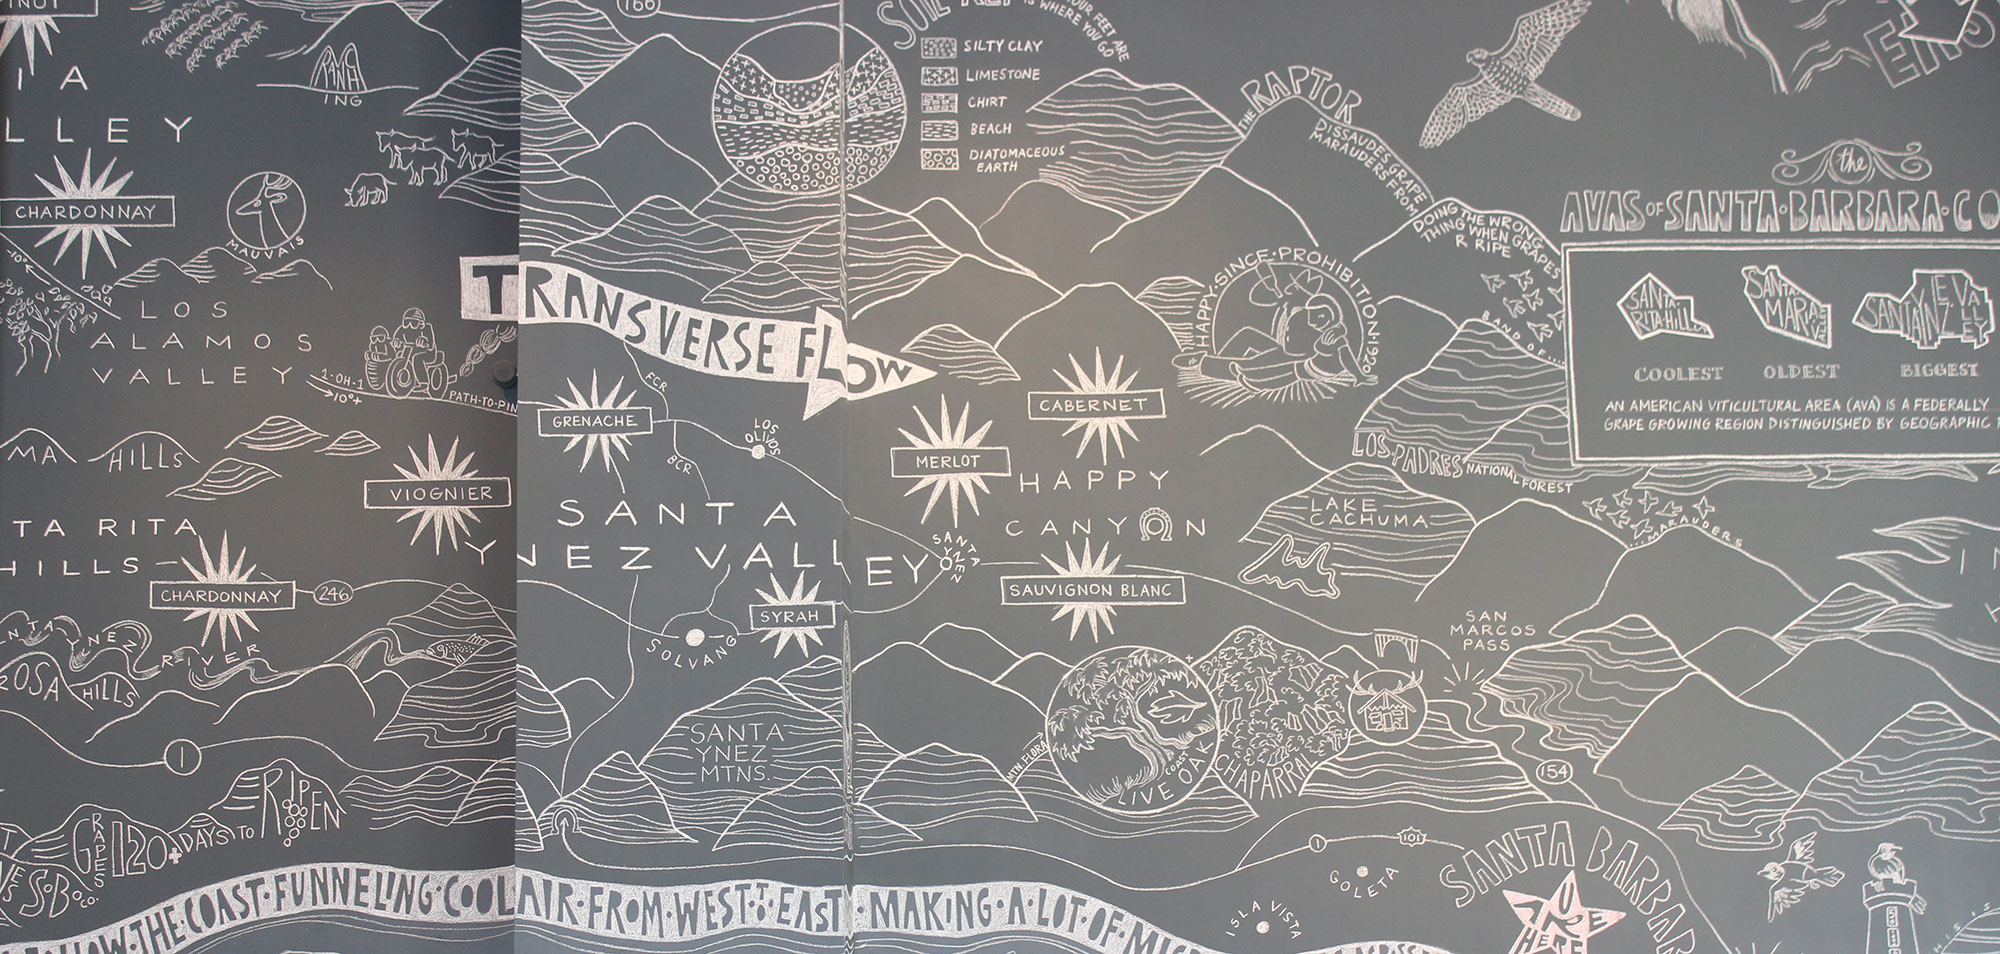 166
IA
LLEY
CHARDONNAY
RANCH
ING
MAUVAIS
-10°
LOS
ALAMOS
VALLEY
1·OH·1
10°+
PATH-TO-PIN
MA HILLS
VIOGNIER
TA RITA
HILLS
CHARDONNAY
246
NTA YNEZ RIVER
HILLS
1
GRAPES 120+ DAYS TO RIPEN
SOIL
YOUR FEET ARE
IS WHERE YOU GO
SILTY CLAY
LIMESTONE
CHIRT
BEACH
DIATOMACEOUS
EARTH
TRANSVERSE FLOW
FCR
GRENACHE
LOS
OLIVOS
BCR
SANTA
YNEZ VALLEY
SYRAH
SOLVANG
SANTA
YNEZ
MERLOT
CABERNET
HAPPY
CANYON
SAUVIGNON BLANC
SANTA
YNEZ
MTNS.
THE RAPTOR
DISSUADES GRAPE
MARAUDERS FROM
DOING THE WRONG
THING WHEN GRAPES
R RIPE
BAND OF...
...MARAUDERS
HAPPY·SINCE·PROHIBITION·1920
LOS·PADRES NATIONAL FOREST
LAKE
CACHUMA
SAN
MARCOS
PASS
MTN. FLORA
COAST
LIVE OAK
CHAPARRAL
154
the
AVAS OF SANTA·BARBARA·CO
SANTA
RITA HILLS
SANTA
MARIA
VALLEY
SANTA YNEZ VALLEY
COOLEST
OLDEST
BIGGEST
AN AMERICAN VITICULTURAL AREA (AVA) IS A FEDERALLY
GRAPE GROWING REGION DISTINGUISHED BY GEOGRAPHIC
1
101
GOLETA
ISLA VISTA
SANTA BARBAR
U
R
HERE
HOW·THE·COAST·FUNNELING·COOL AIR·FROM·WEST TO EAST·MAKING·A·LOT·OF